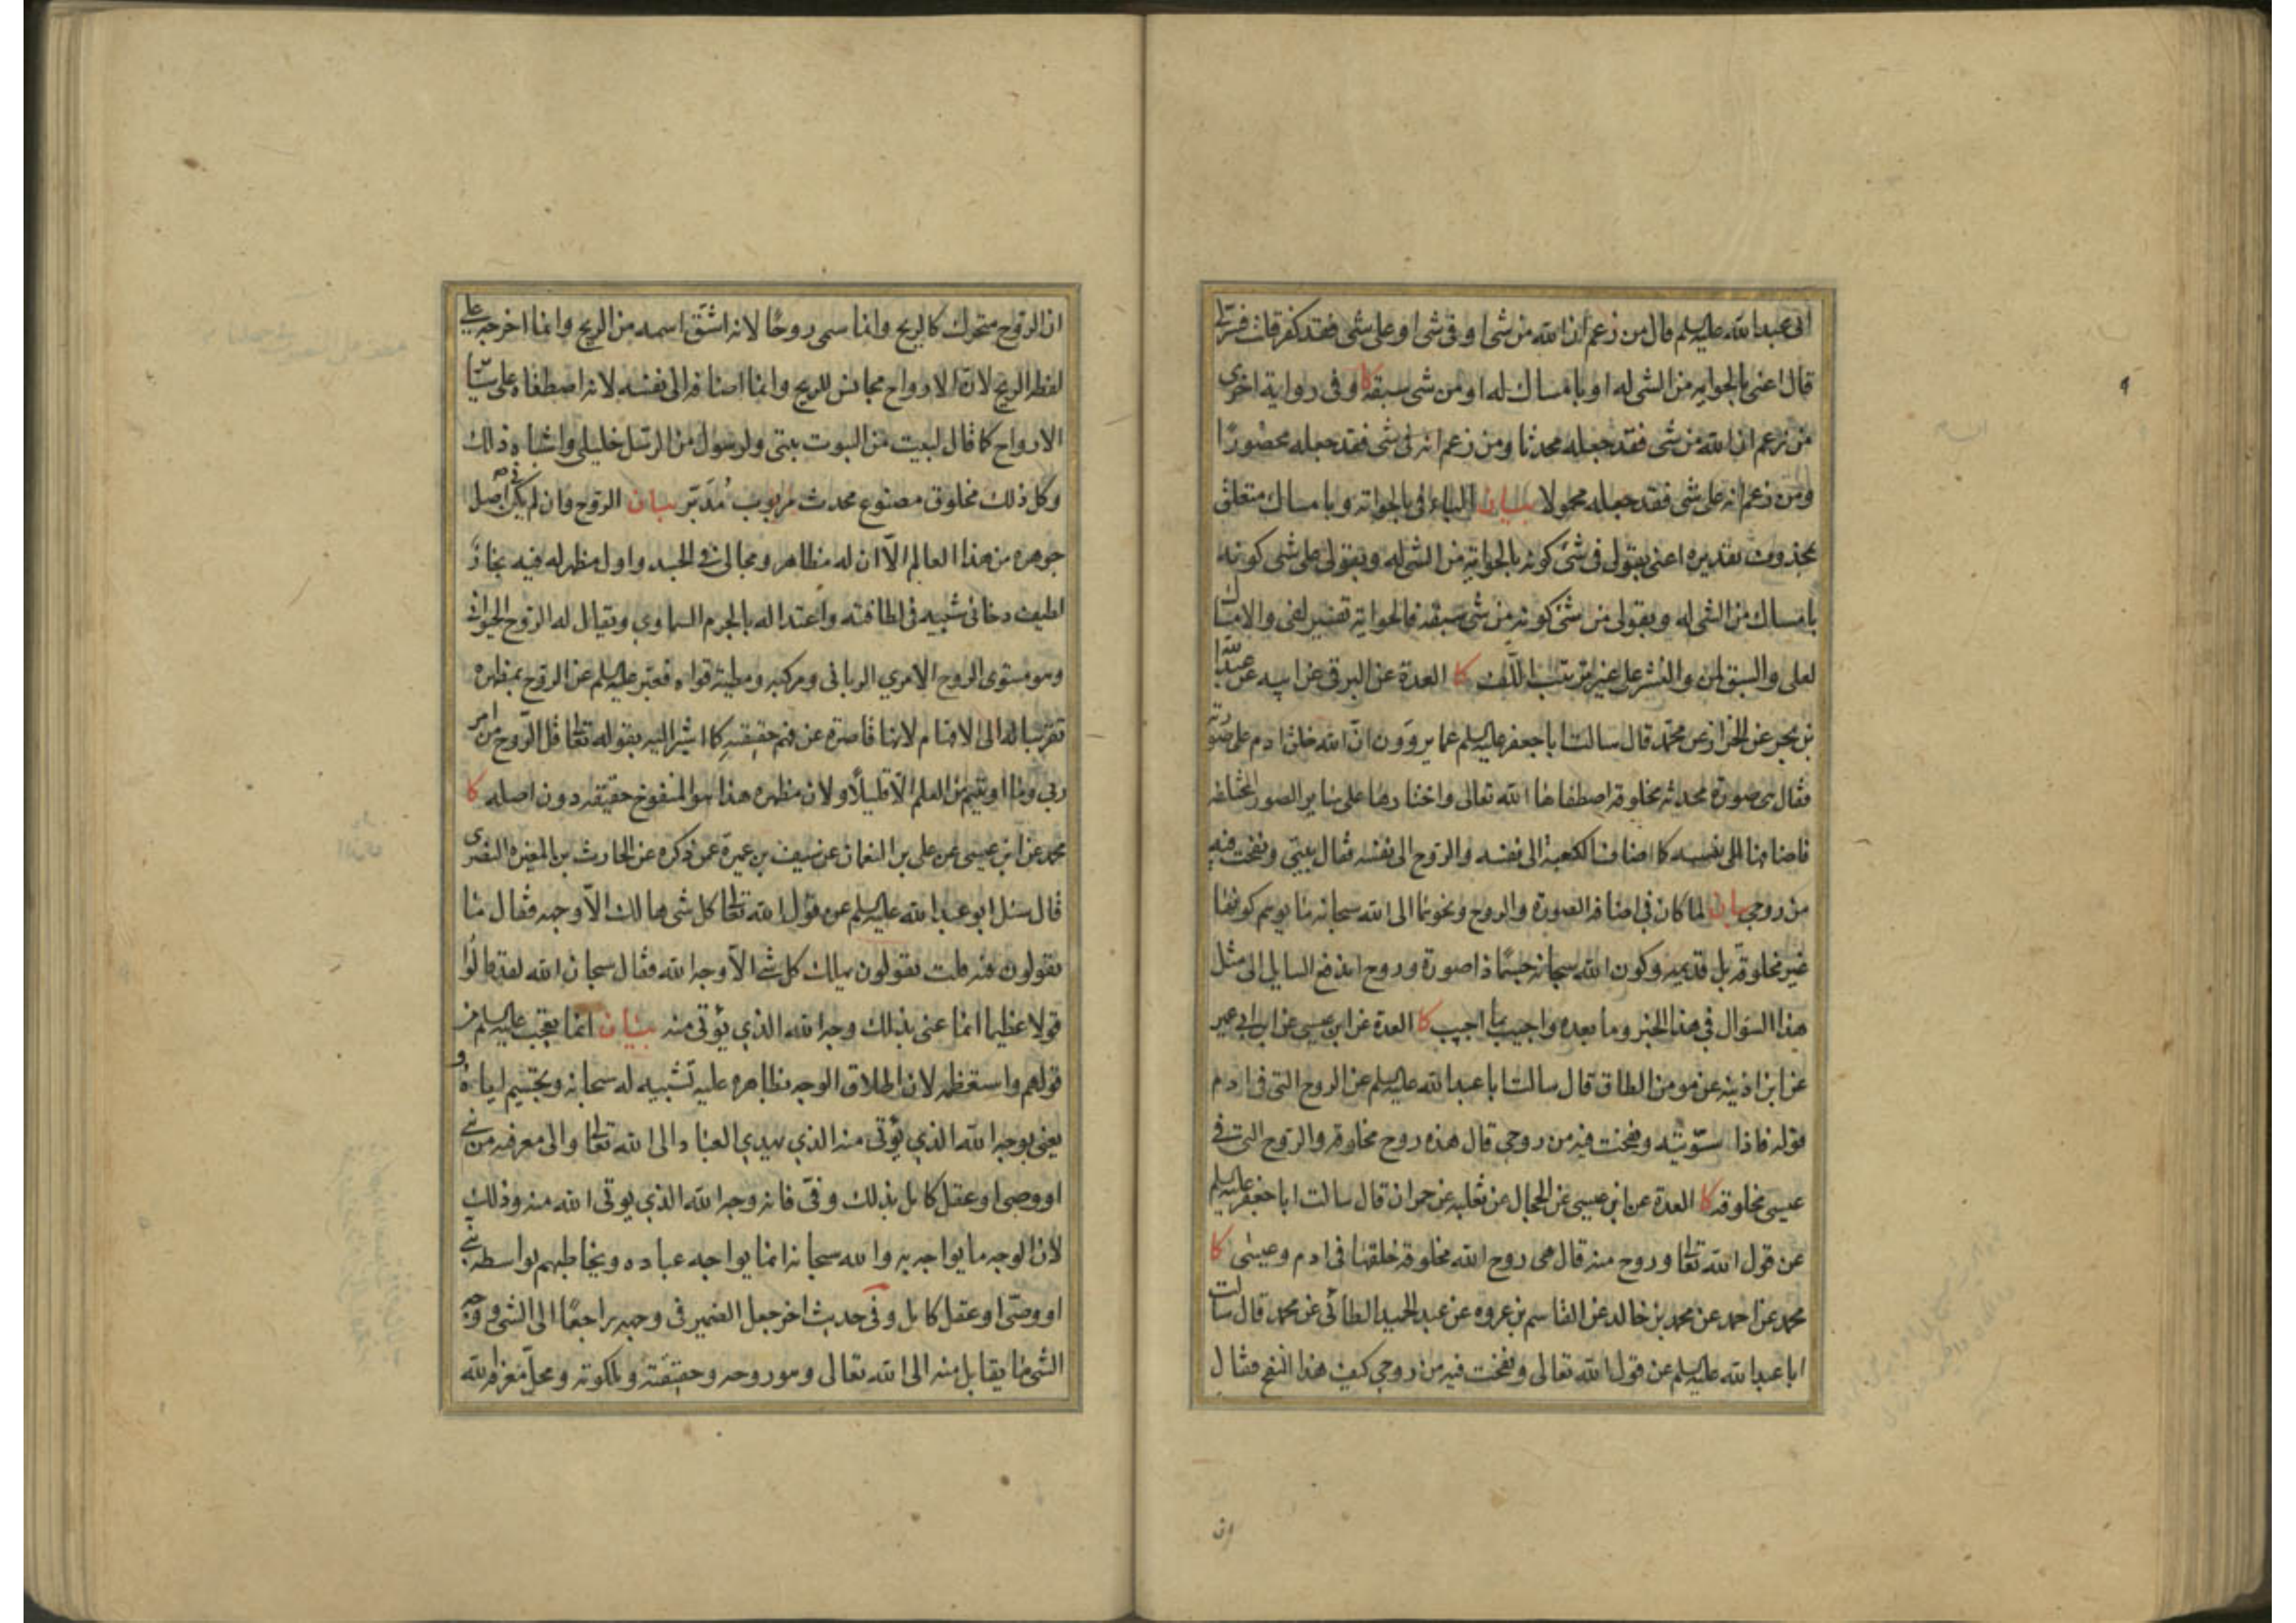 ابى عبد الله عليه السلم قال من زعم ان الله من شى او فى شى او على شى فقد كفر قلت فسر لى
قال اعنى بالحواية من الشى له او بامساك له او من شى سبقه كا و فى رواية اخرى
من زعم ان الله من شى فقد جعله محدثا ومن زعم انه فى شى فقد جعله محصورا
ومن زعم انه على شى فقد جعله محمولا بيان الباء فى بالحواية و بامساك متعلق
بمحذوف تقديره اعنى بقولى فى شى كونه بالحواية من الشى له وبقولى على شى كونه
بامساك من الشى له وبقولى من شى كونه من شى سبقه فالحواية تفسير لفى والامساك
لعلى والسبق لمن والنشر على غير ترتيب اللف كا العدة عن البرقى عن ابيه عن عبد الله
بن بحر عن الخزاز عن محمد قال سالت ابا جعفر عليه السلم عما يروون ان الله خلق ادم على صورته
فقال هى صورة محدثة مخلوقة اصطفاها الله تعالى واختارها على ساير الصور المختلفة
فاضافها الى نفسه كما اضاف الكعبة الى نفسه والروح الى نفسه فقال بيتى ونفخت فيه
من روحى بيان لما كان فى اضافة الصورة والروح ونحوهما الى الله سبحانه ما يوهم كونهما
غير مخلوقة بل قديمة وكون الله سبحانه جسما ذا صورة وروح اندفع السايل الى مثل
هذا السؤال فى هذا الخبر وما بعده واجيب بما اجيب كا العدة عن ابن عيسى عن ابن ابى عمير
عن ابن اذينه عن مومن الطاق قال سالت ابا عبد الله عليه السلم عن الروح التى فى ادم
قوله فاذا سوّيته ونفخت فيه من روحى قال هذه روح مخلوقة والروح التى فى
عيسى مخلوقة كا العدة عن ابن عيسى عن الحجال عن ثعلبه عن حمران قال سالت ابا جعفر عليه السلم
عن قول الله تعالى وروح منه قال هى روح الله مخلوقة خلقها فى ادم وعيسى كا
محمد عن احمد عن محمد بن خالد عن القاسم بن عروه عن عبد الحميد الطائى عن محمد قال سالت
ابا عبد الله عليه السلم عن قول الله تعالى ونفخت فيه من روحى كيف هذا النفخ فقال
ان
ان الروح متحرك كالريح وانما سمى روحًا لانه اشتق اسمه من الريح وانما اخرجه على
لفظ الريح لان الارواح مجانس للريح وانما اضافه الى نفسه لانه اصطفاه على ساير
الارواح كما قال لبيت من البيوت بيتى ولرسول من الرسل خليلى واشباه ذلك
وكل ذلك مخلوق مصنوع محدث مربوب مُدَبّر بيان الروح وان لم يكن فى اصل
جوهره من هذا العالم الا ان له مظاهر ومجالى فى الجسد واول مظهر له فيه بخار
لطيف دخانى شبيه فى لطافته واعتداله بالجرم السماوي ويقال له الروح الحيوانى
وهو مستوى الروح الامري الربانى ومركبه ومطية قواه فعبر عليه السلم عن الروح بمظهره
تقريبا له الى الافهام لانها قاصرة عن فهم حقيقته كما اشير اليه بقوله تعالى قل الروح من امر
ربى وما اوتيتم من العلم الا قليلا ولان مظهره هذا هو المنفوخ حقيقه دون اصله كا
محمد عن ابن عيسى عن على بن النعمان عن سيف بن عميرة عمن ذكره عن الحارث بن المغيرة النصرى
قال سئل ابو عبد الله عليه السلم عن قول الله تعالى كل شى هالك الا وجهه فقال ما
يقولون فيه قلت يقولون يهلك كل شى الا وجه الله فقال سبحان الله لقد قالوا
قولا عظيما انما عنى بذلك وجه الله الذي يؤتى منه بيان انما تعجب عليه السلم من
قولهم واستعظمه لان اطلاق الوجه بظاهره عليه تشبيه له سبحانه وتجسيم اياه و
يعنى بوجه الله الذي يؤتى منه الذي يهدي العباد الى الله تعالى والى معرفته من نبى
او وصى او عقل كامل بذلك وفىّ فانه وجه الله الذي يوتى الله منه وذلك
لان الوجه ما يواجه به والله سبحانه انما يواجه عباده ويخاطبهم بواسطة نبى
او وصّى او عقل كامل وفى حديث اخر جعل الضمير فى وجهه راجعًا الى الشى ووجه
الشى ما يقابل منه الى الله تعالى وهو روحه وحقيقته وملكوته ومحل معرفة الله